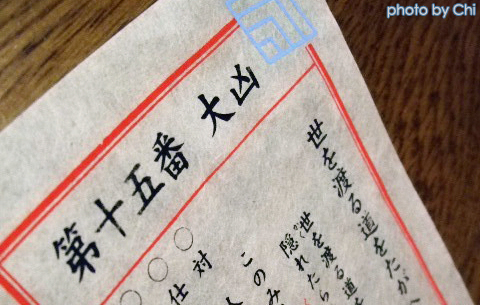 photo by Chi
第十五番 大凶
世を渡る道をたが
世を渡る道を
隠れたら
このみ
対
仕